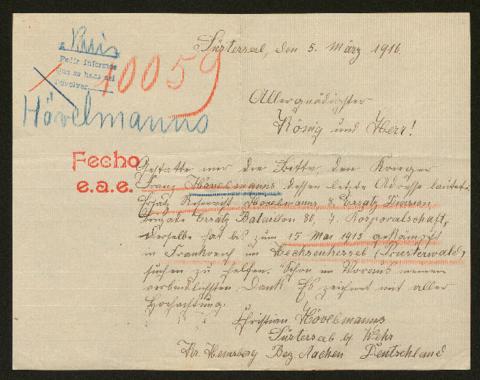 Paris
Pedir informes
que se haga así
Devolver
10059
Hövelmanns
Fecho
e.a.e.
Süsterseel, den 5. März 1916
Allergnädigster
König und Herr!
Gestatte mir die Bitte, den Krieger
Franz Hövelmanns dessen letzte Adresse lautet:
Ersatz Reservist Hövelmanns 8. Ersatz Division,
Brigade Ersatz Batallion 80, 7. Korporalschaft,
derselbe hat bis zum 15 Mai 1915 gekämpft
in Frankreich im Hechsenkessel (Priesterwald)
suchen zu helfen. Schon im Voraus meinen
verbindlichsten Dank. Es zeichnet mit aller
Hochachtung.
Christian Hövelmanns
Süsterseel b/ Wehr
Kr. Heinsberg Bez Aachen Deutschland